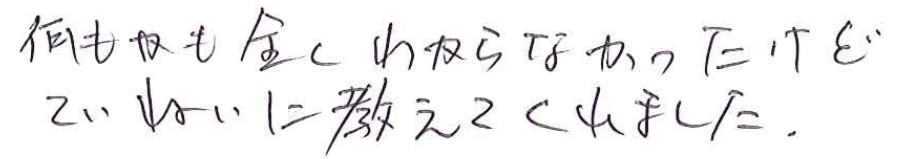 何もかも全くわからなかったけど
ていねいに教えてくれました.